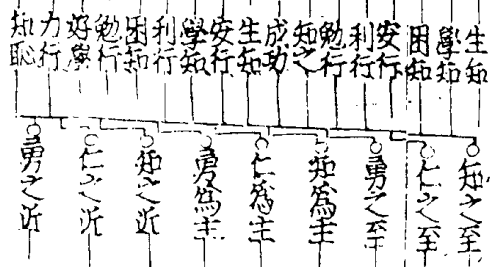 生知
學知
困知
安行
利行
勉行
知之
成功
生知
安行
學知
利行
困知
勉行
好學
力行
知恥
知之至
仁之至
勇之至
知為主
仁為主
勇為主
知之近
仁之近
勇之近